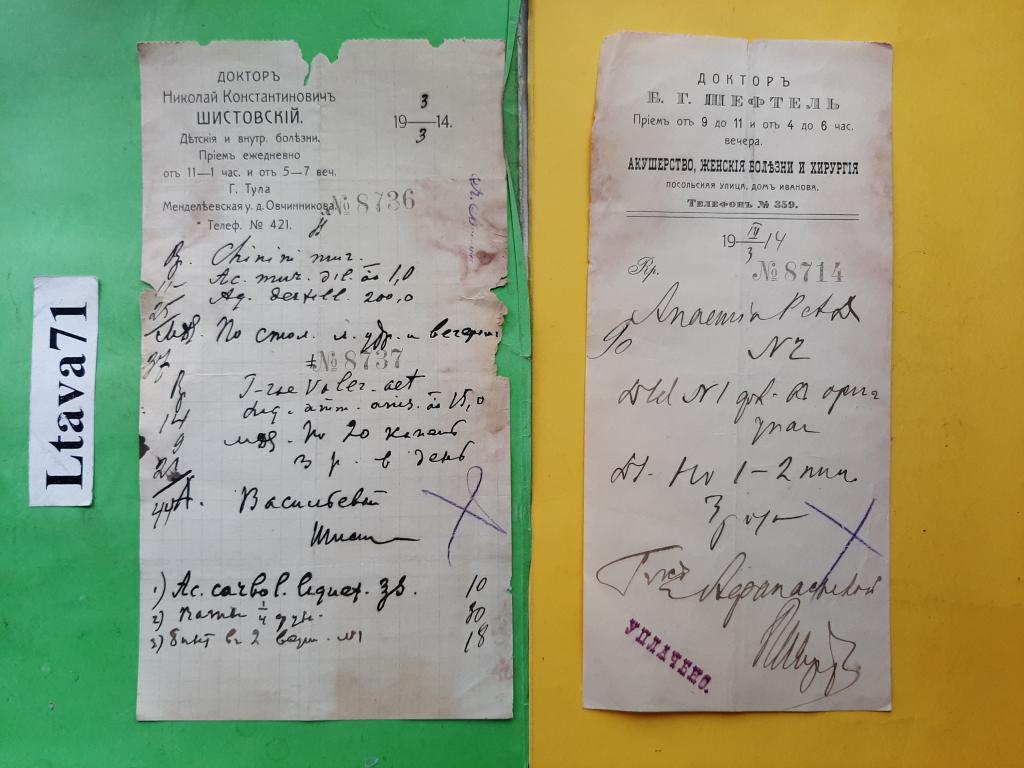 Ltava71
ДОКТОРЪ
Николай Константиновичъ
ШИСТОВСКІЙ.
Дѣтскія и внутр. болѣзни.
Пріемъ ежедневно
отъ 11—1 час. и отъ 5—7 веч.
Г. Тула
Менделѣевская у. д. Овчинникова
Телеф. № 421.
3
19— —14.
3
№ 8736
Rp. Chinini mur.
Ac. mur. dil. āā 1,0
Aq. destill. 200,0
25
MDS. По стол. л. утр. и вечером
37
№ 8737
Rp T-rae Valer. aet
14 Liq. amm. anis. āā 15,0
9 MDS. По 20 капель
3 р. в день
44
Васильевой
1) Ac. carbol. liquef. 10
2) Ваты 1/4 30
3) Бинт в 2 верш. №1 18
ДОКТОРЪ
Б. Г. ШЕФТЕЛЬ
Пріемъ отъ 9 до 11 и отъ 4 до 6 час.
вечера.
АКУШЕРСТВО, ЖЕНСКІЯ БОЛѢЗНИ И ХИРУРГІЯ
ПОСОЛЬСКАЯ УЛИЦА, ДОМЪ ИВАНОВА.
Телефонъ № 359.
IV
19— 14
3
Rp. № 8714
N2
По 1-2 пил
Афанасьевой
УПЛАЧЕНО.